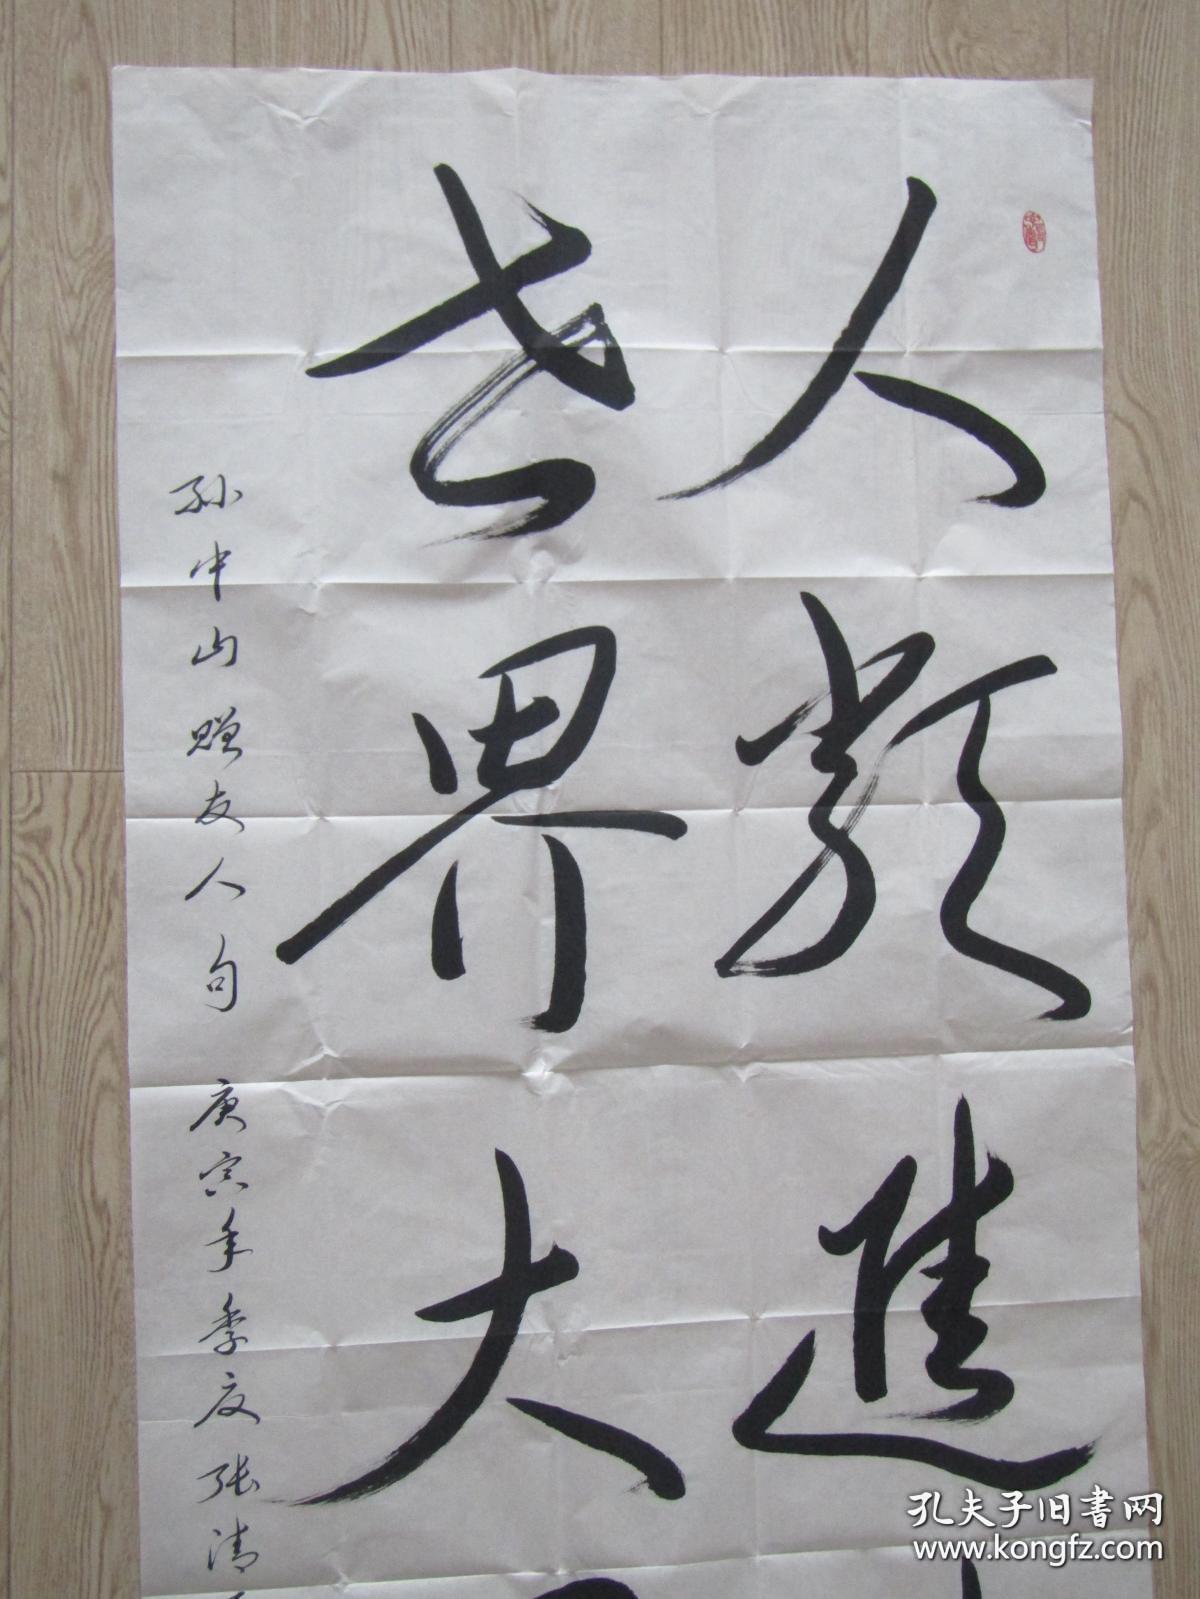 人類進
世界大
孙中山赠友人句 庚寅年季夏 张清
孔夫子旧书网
www.kongfz.com